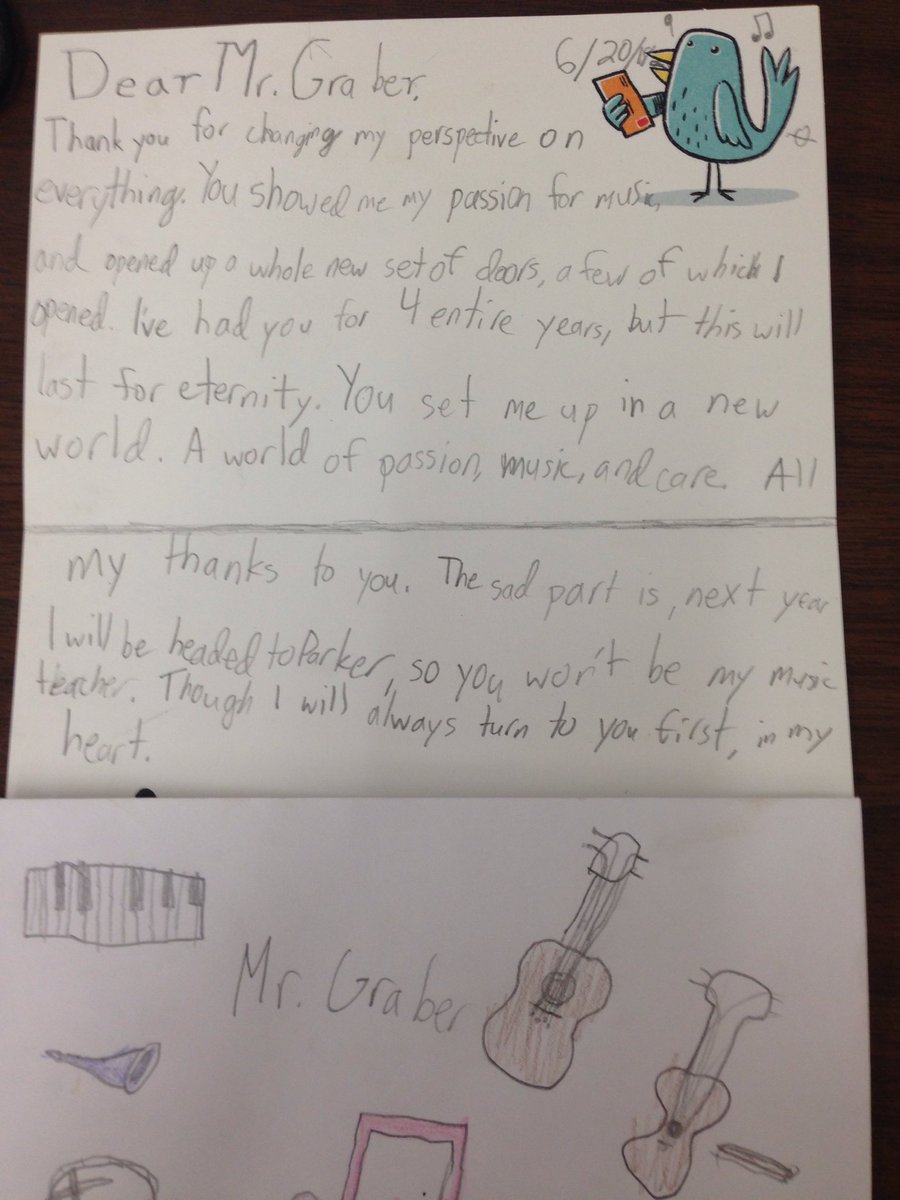 Dear Mr. Graber,
6/20/
Thank you for changing my perspective on
everything. You showed me my passion for music,
and opened up a whole new set of doors, a few of which I
opened. I've had you for 4 entire years, but this will
last for eternity. You set me up in a new
world. A world of passion, music, and care. All
my thanks to you. The sad part is, next year
I will be headed to Parker, so you won't be my music
teacher. Though I will always turn to you first, in my
heart.
Mr. Graber